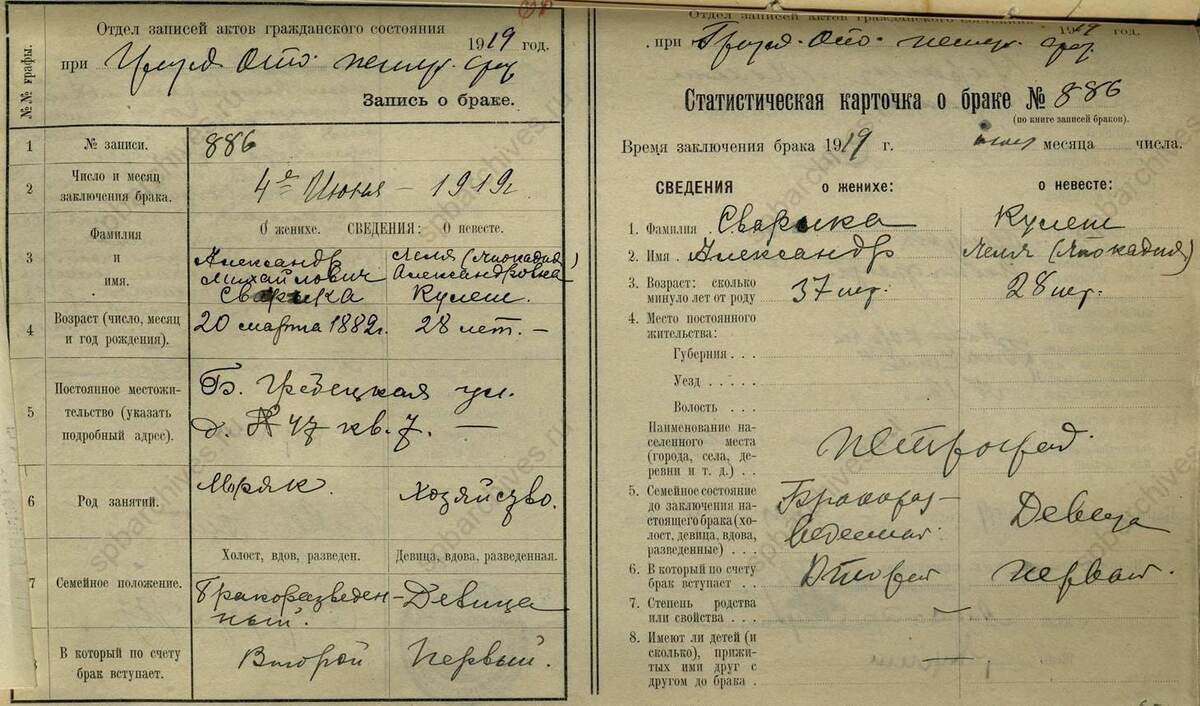 №№ графы.
Отдел записей актов гражданского состояния
1919 год.
при
Запись о браке.
1 № записи. 886
2 Число и месяц заключения брака. 4го Июня – 1919г
О женихе. СВЕДЕНИЯ: О невесте.
3 Фамилия и имя.
Александр Леля (Леокадия)
Михайлович Александровна
Сварика Кулеш.
4 Возраст (число, месяц и год рождения). 20 марта 1882г. 28 лет. –
5 Постоянное местожительство (указать подробный адрес).
Б. Гребецкая ул.
д. № 47 кв. 7. –
6 Род занятий. Моряк. Хозяйство.
Холост, вдов, разведен. Девица, вдова, разведенная.
7 Семейное положение. Бракоразведен- Девица
ный.
В который по счету брак вступает. Второй Первый.
Отдел записей актов гражданского состояния
при 1919 год.
Статистическая карточка о браке № 886
(по книге записей браков).
Время заключения брака 1919 г. месяца числа.
СВЕДЕНИЯ о женихе: о невесте:
1. Фамилия . Сварика Кулеш
2. Имя . Александр Леля (Леокадия)
3. Возраст: сколько минуло лет от роду 37 лет. 28 лет.
4. Место постоянного жительства:
Губерния . . .
Уезд . . . . .
Волость . . .
Наименование населенного места (города, села, деревни и т. д.) . . Петроград.
5. Семейное состояние до заключения настоящего брака (холост, девица, вдова, разведенные) . . . Бракораз- Девица
веденный
6. В который по счету брак вступает . . Второй первый.
7. Степень родства или свойства . . .
8. Имеют ли детей (и сколько), прижитых ими друг с другом до брака . –
spbarchives.ru